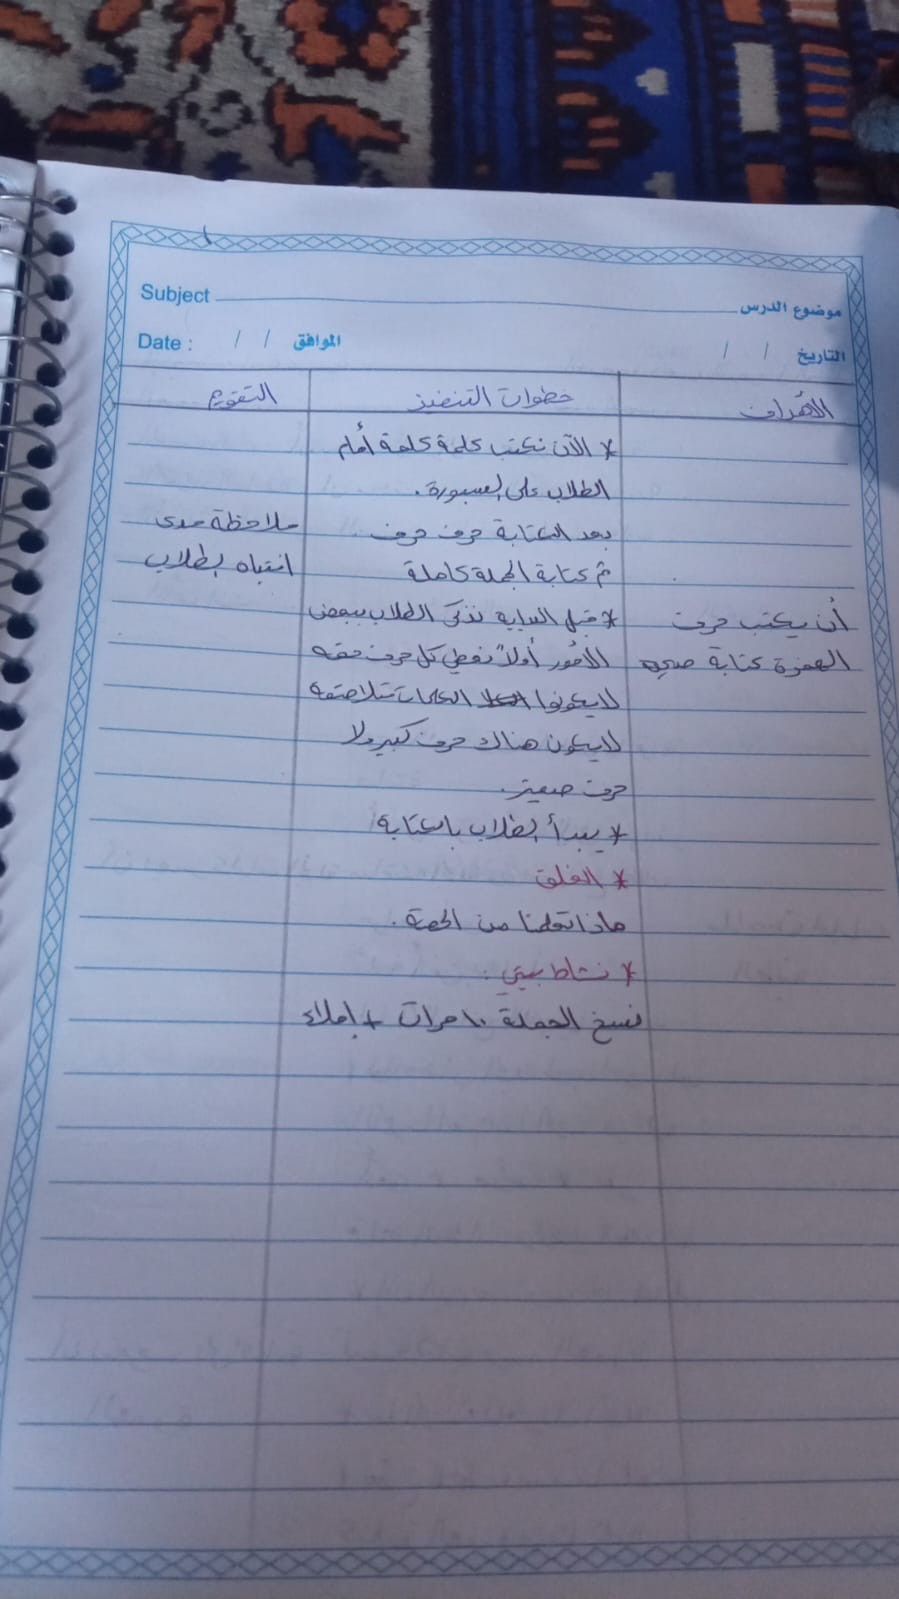 Subject موضوع الدرس
Date : / / الموافق / / التاريخ
الأهداف خطوات التنفيذ التقويم
* الآن نكتب كلمة كلمة أمام
الطلاب على السبورة.
بعد الكتابة حرف حرف. ملاحظة مدى
ثم كتابة الجملة كاملة انتباه الطلاب
أن يكتب حرف * قبل البداية نذكر الطلاب ببعض
الهمزة كتابة صحيحة الأمور أولاً نعطي كل حرف حقه
لا يكونوا الكلمات متلاصقة
لا يكون هناك حرف كبير ولا
حرف صغير.
* يبدأ الطلاب بالكتابة
* الغلق
ماذا تعلمنا من الحصة.
* نشاط بيتي:
نسخ الجملة ١٠ مرات + إملاء